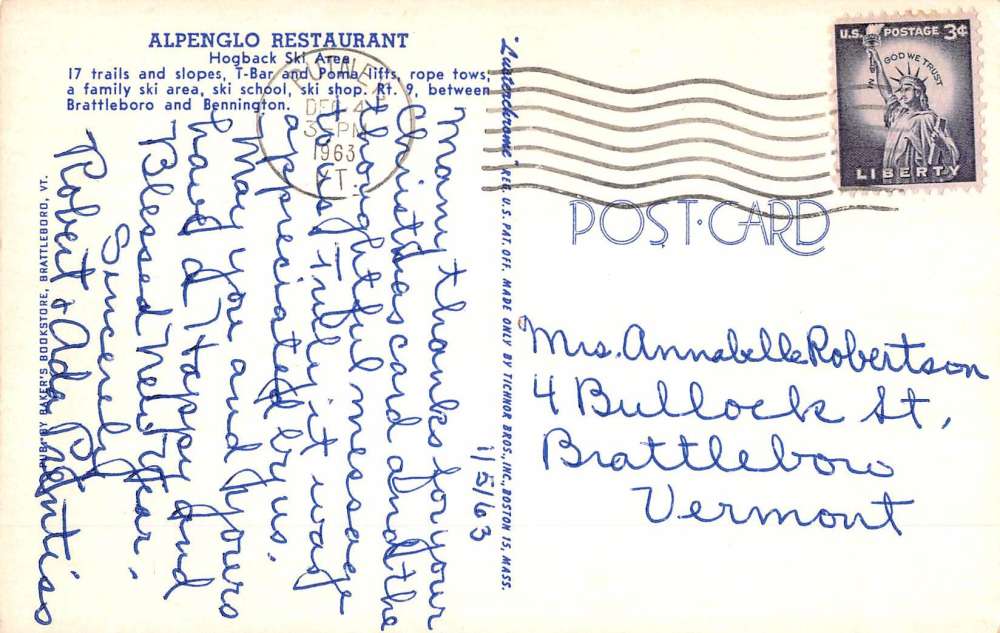 ALPENGLO RESTAURANT
Hogback Ski Area
17 trails and slopes, T-Bar and Poma lifts, rope tows,
a family ski area, ski school, ski shop. Rt. 9, between
Brattleboro and Bennington.
DEC 4
3 PM
1963
VT.
U.S. POSTAGE 3¢
IN GOD WE TRUST
LIBERTY
POST-CARD
1/5/63
Many thanks for your
Christmas card and the
thoughtful message
thus. Truly it was
appreciated by us.
May you and yours
have a Happy and
Blessed New Year.
Sincerely
Robert & Ada Prentiss
PUB. BY BAKER'S BOOKSTORE, BRATTLEBORO, VT.
"Lusterchrome" REG. U.S. PAT. OFF. MADE ONLY BY TICHNOR BROS., INC., BOSTON 15, MASS.
Mrs. Annabelle Robertson
4 Bullock St,
Brattleboro
Vermont